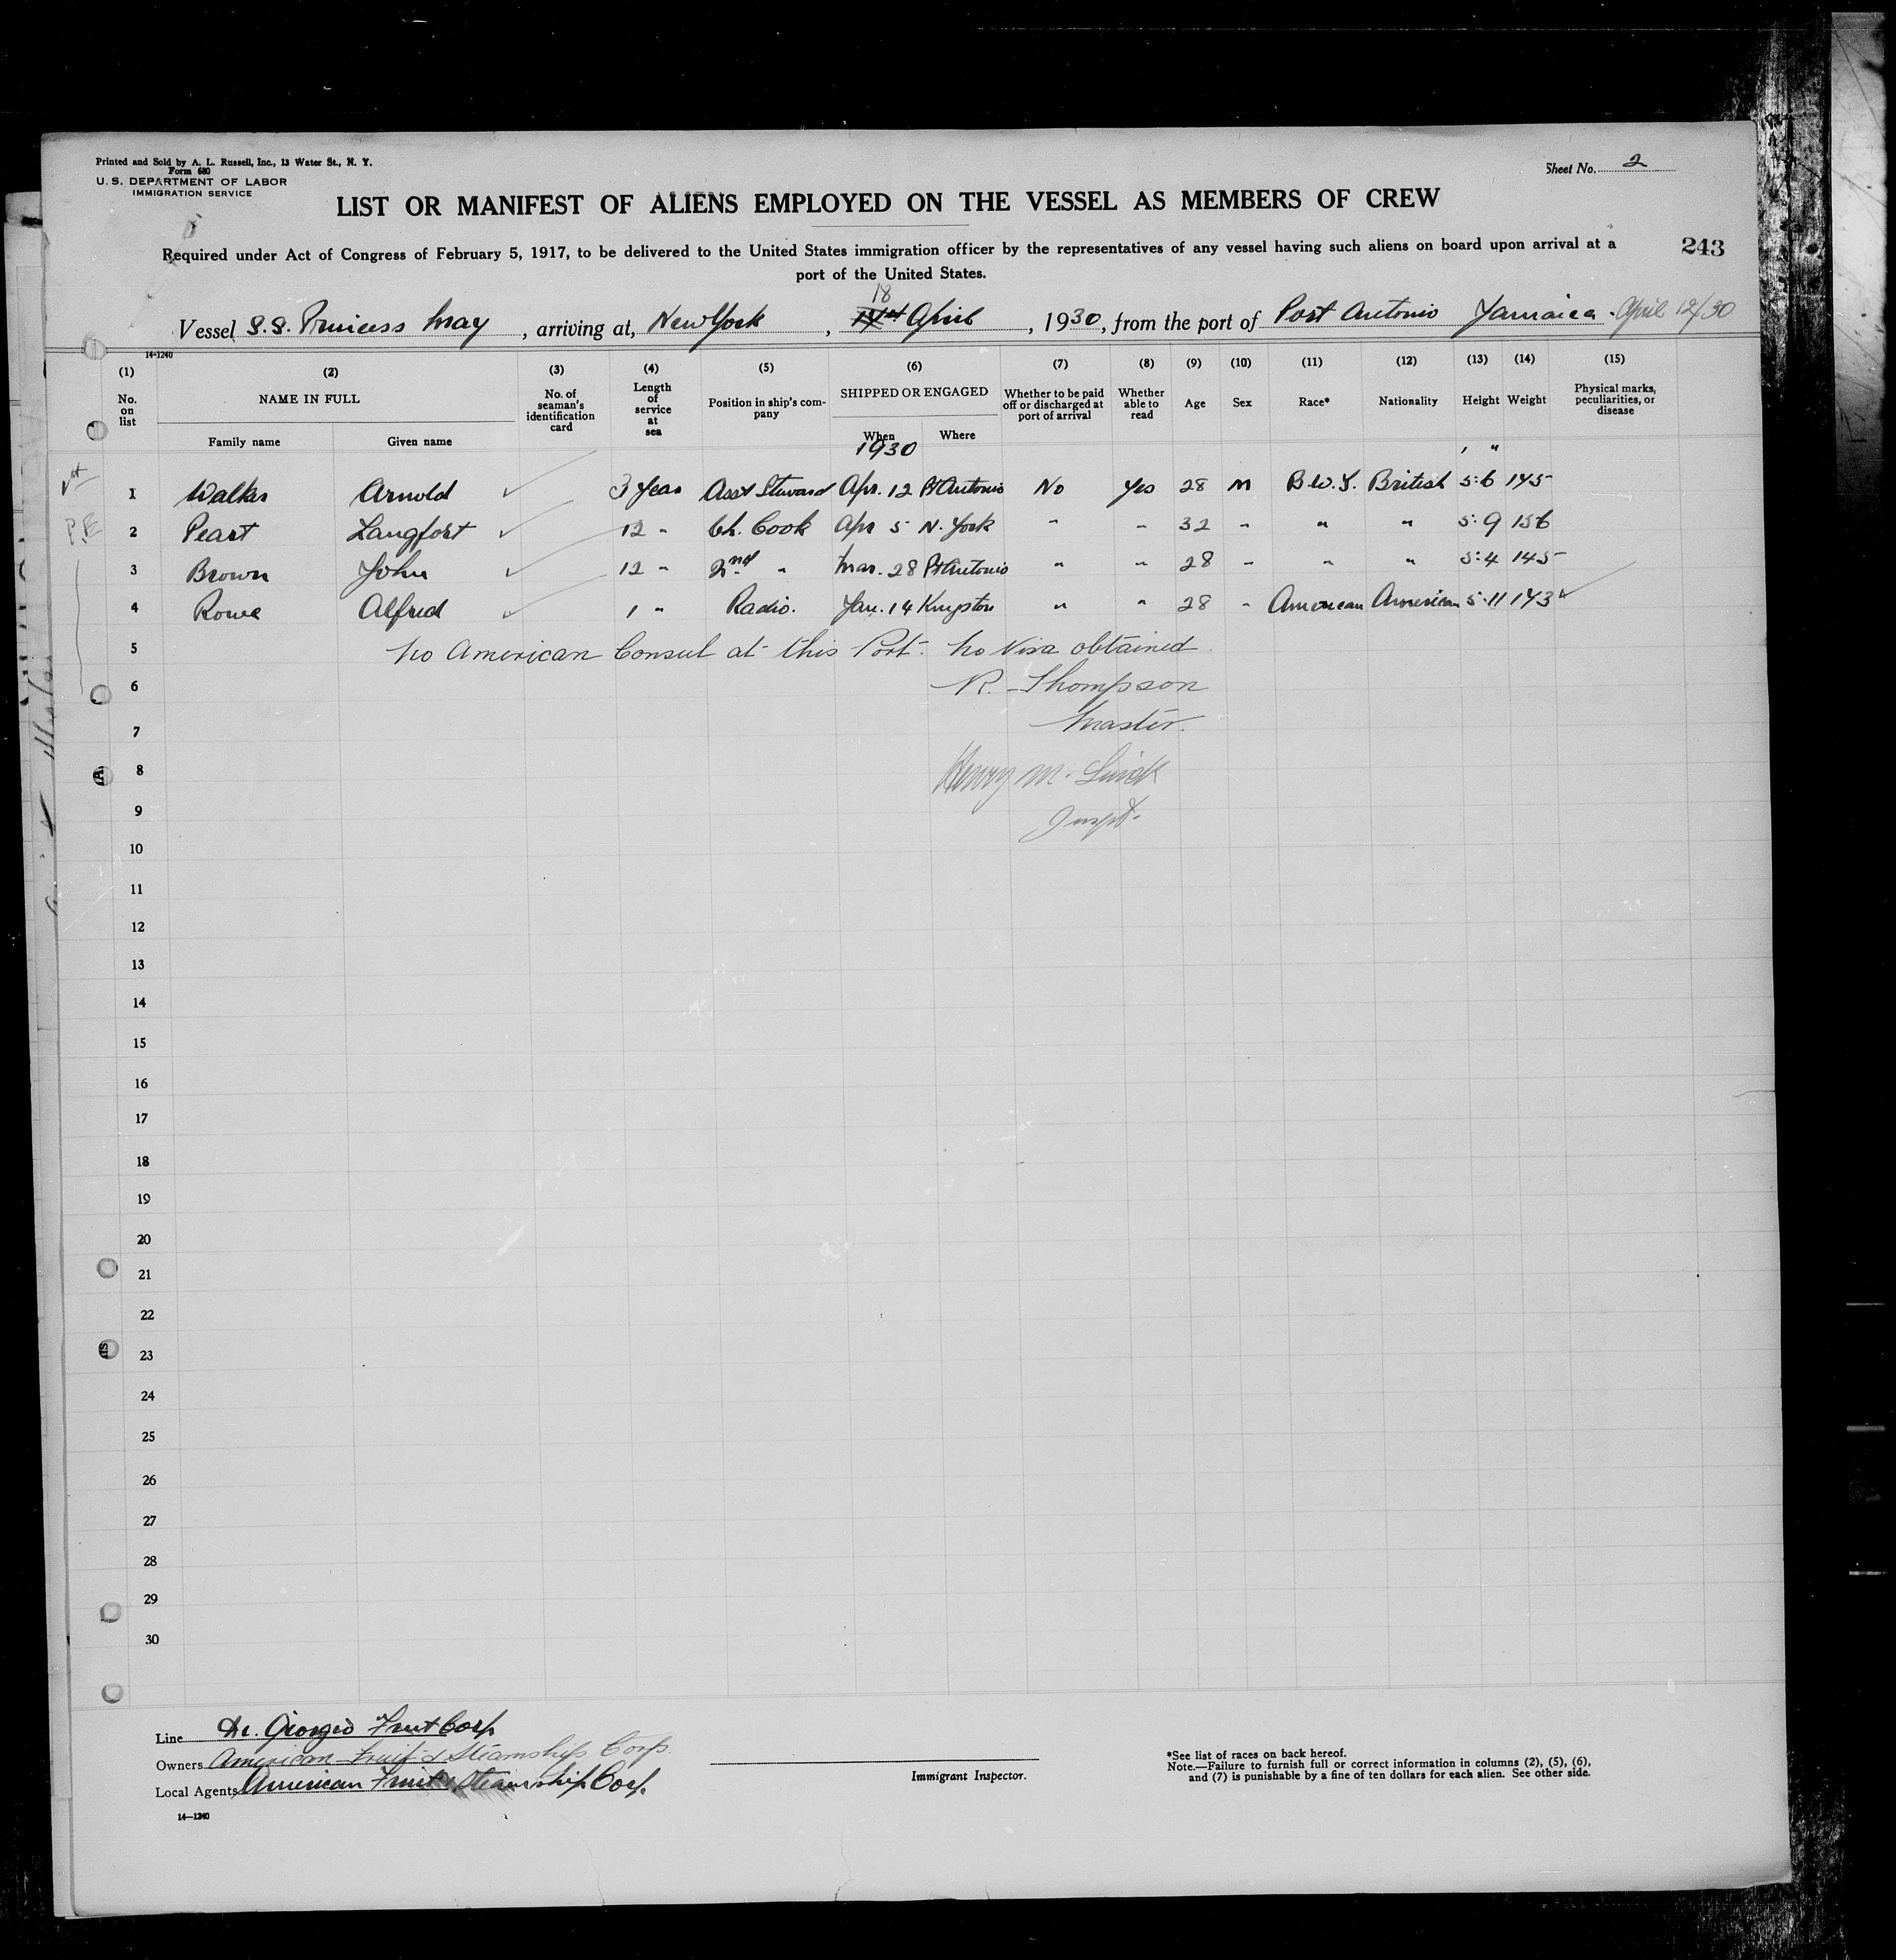 Printed and Sold by A. L. Russell, Inc., 13 Water St., N. Y.
Form 680
U. S. DEPARTMENT OF LABOR
IMMIGRATION SERVICE
Sheet No. 2
LIST OR MANIFEST OF ALIENS EMPLOYED ON THE VESSEL AS MEMBERS OF CREW
Required under Act of Congress of February 5, 1917, to be delivered to the United States immigration officer by the representatives of any vessel having such aliens on board upon arrival at a
port of the United States.
243
18
Vessel S.S. Princess May, arriving at, New York, April, 1930, from the port of Port Antonio Jamaica. April 12/30
14-1240
(1) (2) (3) (4) (5) (6) (7) (8) (9) (10) (11) (12) (13) (14) (15)
No. on list NAME IN FULL No. of seaman's identification card Length of service at sea Position in ship's company SHIPPED OR ENGAGED Whether to be paid off or discharged at port of arrival Whether able to read Age Sex Race* Nationality Height Weight Physical marks, peculiarities, or disease
Family name Given name When Where
1930 ' "
1 Walker Arnold 3 Years Asst Steward Apr. 12 Pt Antonio No Yes 28 M B.W.I. British 5:6 145
2 Peart Langfort 12 " Ch. Cook Apr 5 N. York " " 32 " " " 5:9 156
3 Brown John 12 " 2nd " Mar. 28 Pt Antonio " " 28 " " " 5:4 145
4 Rowe Alfred 1 " Radio. Jan. 14 Kingston " " 28 " American American 5·11 143
5 No American Consul at this Port. No Visa obtained
6 R. Thompson
7 Master.
8 Henry M.
9 Inspt.
10
11
12
13
14
15
16
17
18
19
20
21
22
23
24
25
26
27
28
29
30
Line Di. Giorgio Fruit Corp
Owners American Fruit & Steamship Corp.
Local Agents American Fruit & Steamship Corp.
14—1240
Immigrant Inspector.
*See list of races on back hereof.
Note.—Failure to furnish full or correct information in columns (2), (5), (6),
and (7) is punishable by a fine of ten dollars for each alien. See other side.